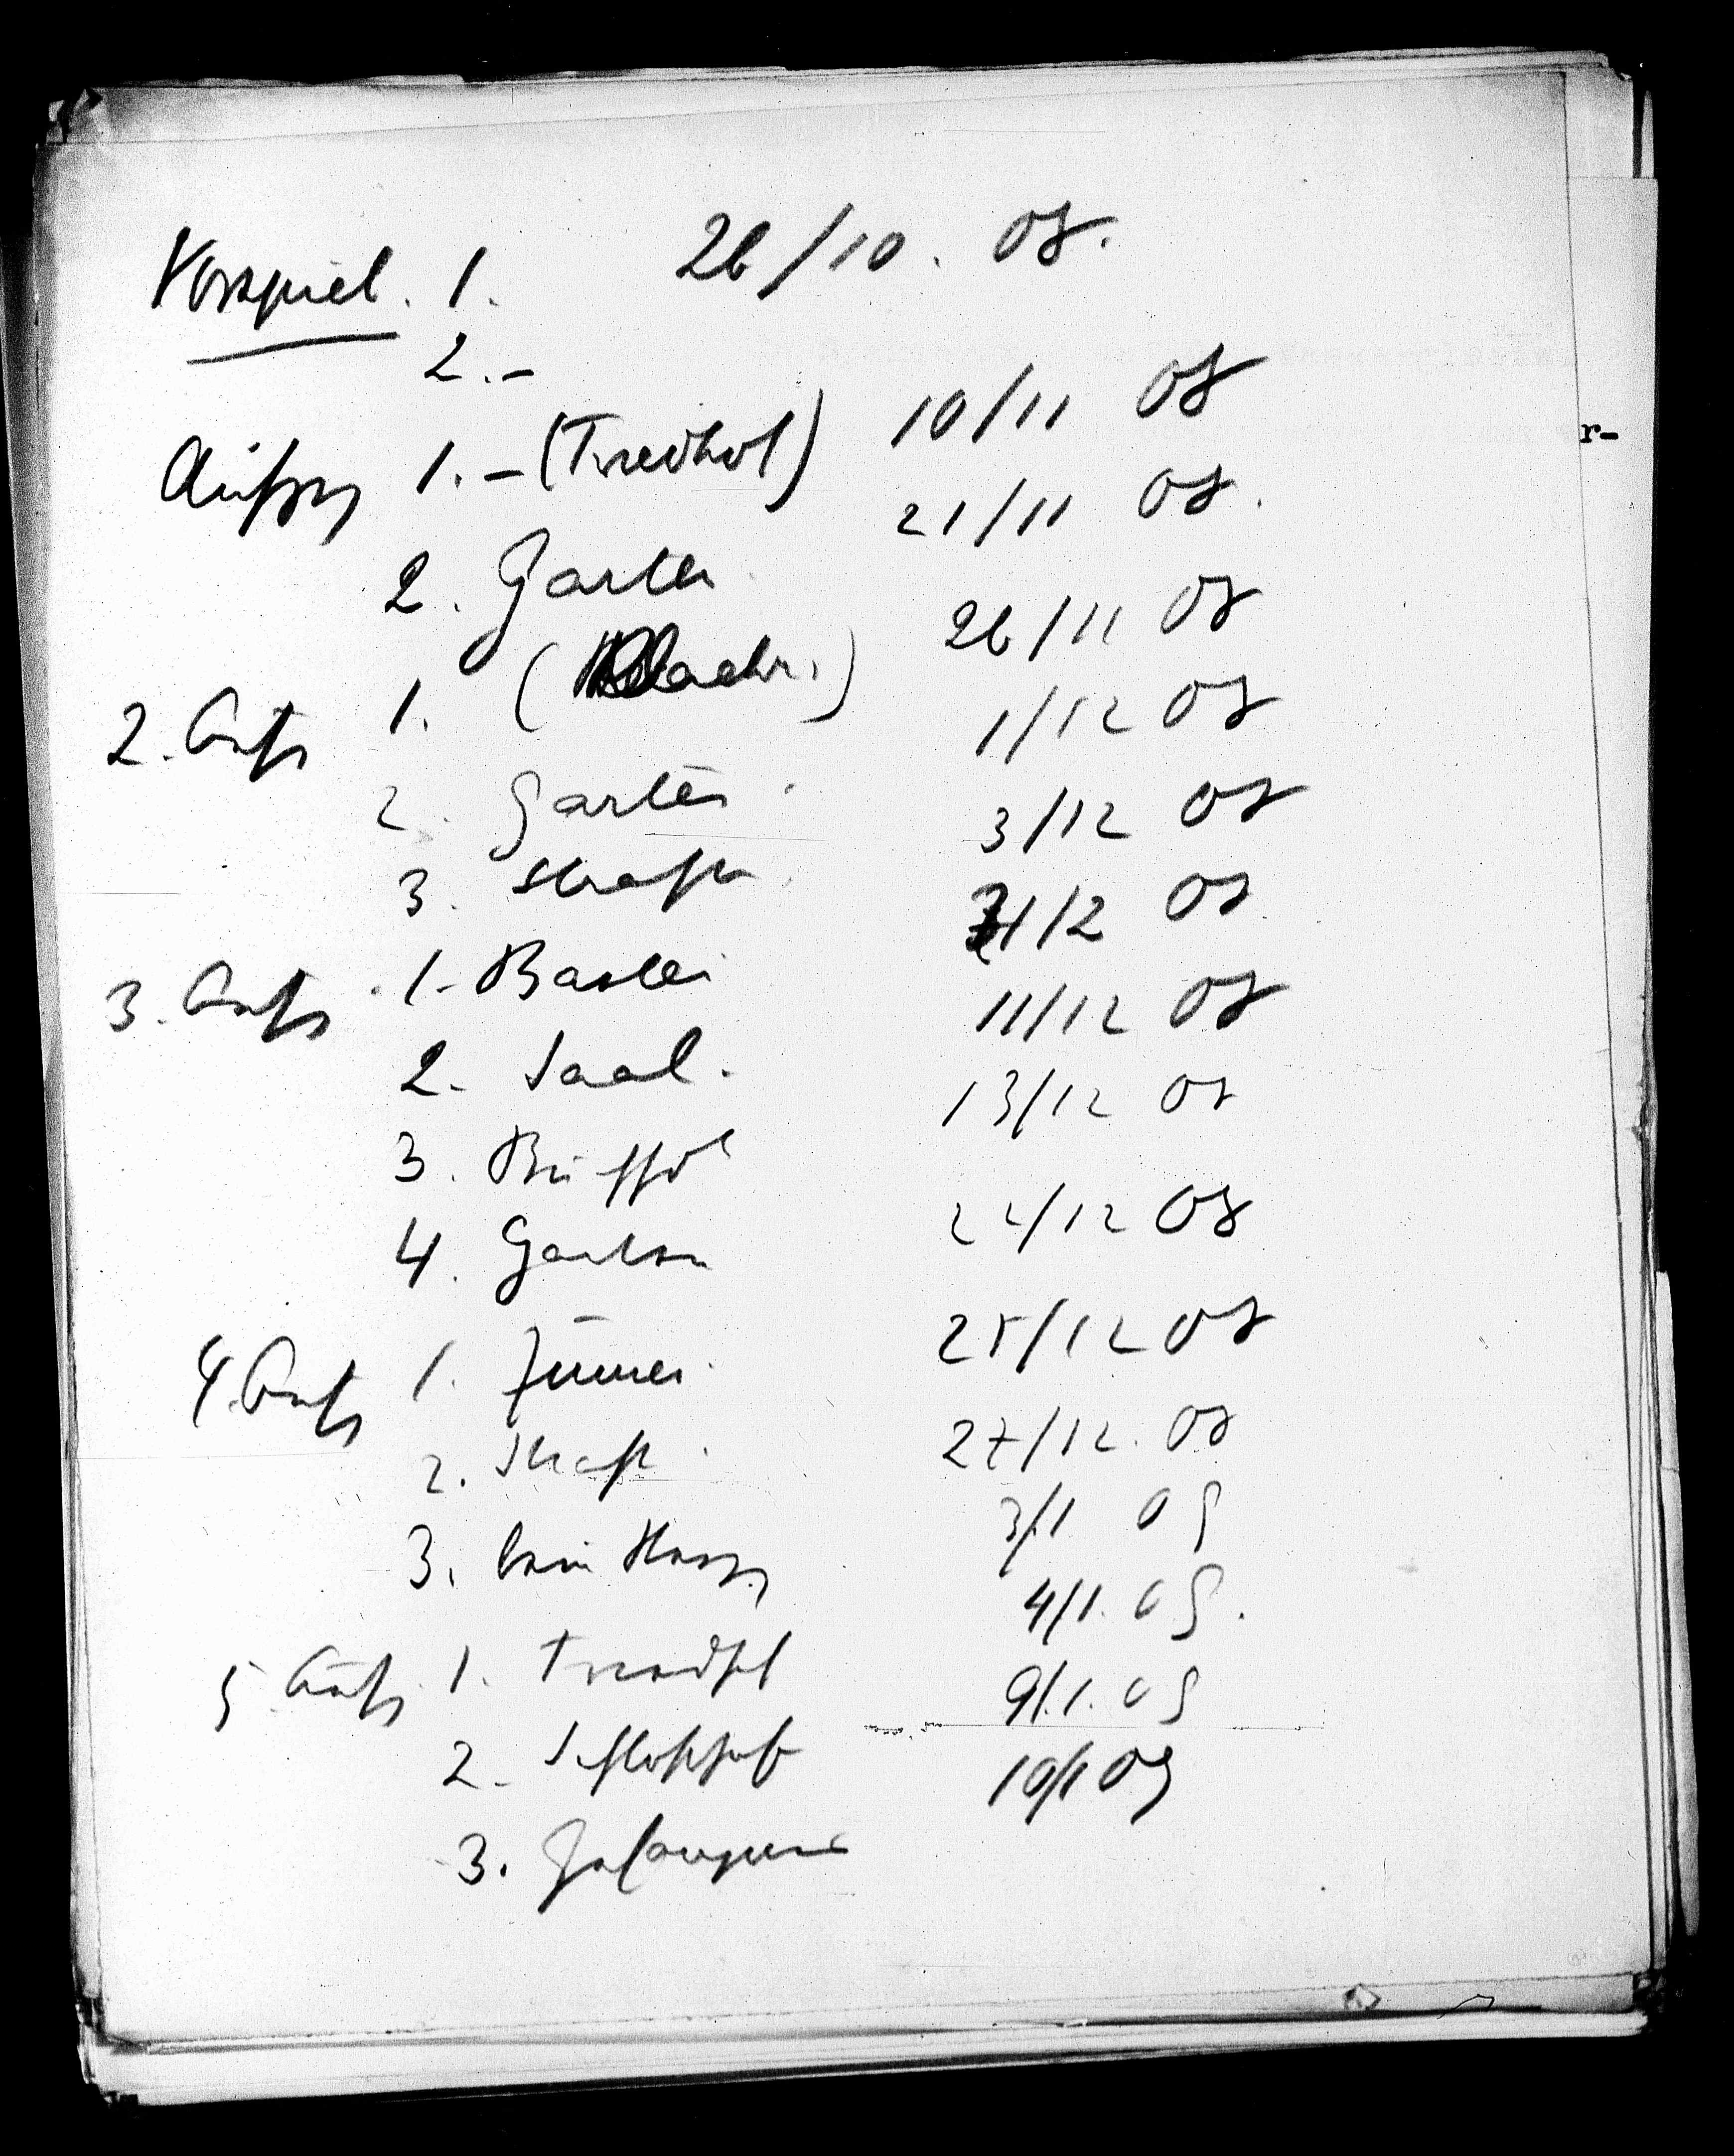 Vorspiel. 1. 26/10. 08.
2. –
Aufzg 1. – (Friedhof) 10/11 08
2. Garten 21/11 08.
2. Aufz 1. ( ) 26/11 08
2. Garten. 1/12 08
3. Straße. 3/12 08
3. Aufz 1. Bastei 12 08
2. Saal. 11/12 08
3. 13/12 08
4. Garten 22/12 08
4. Aufz 1. Zimmer. 25/12 08
2. Straße. 27/12. 08
3. beim 3/1 09
5 Aufz. 1. Friedhof 4/1. 09.
2. Schloßhof 9/1. 09
3. Gefängnis 10/1 09
r-